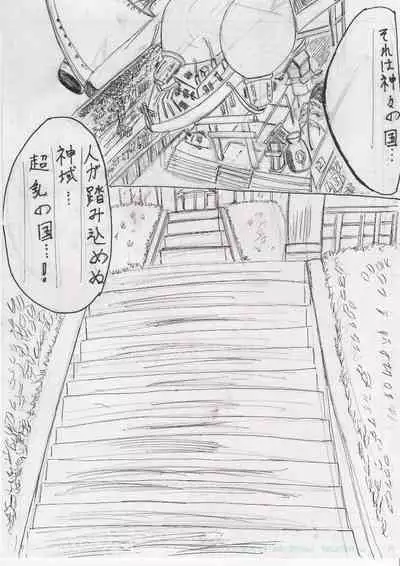 それは神々の国…
人が踏み込めぬ
神域…
超乳の国…!